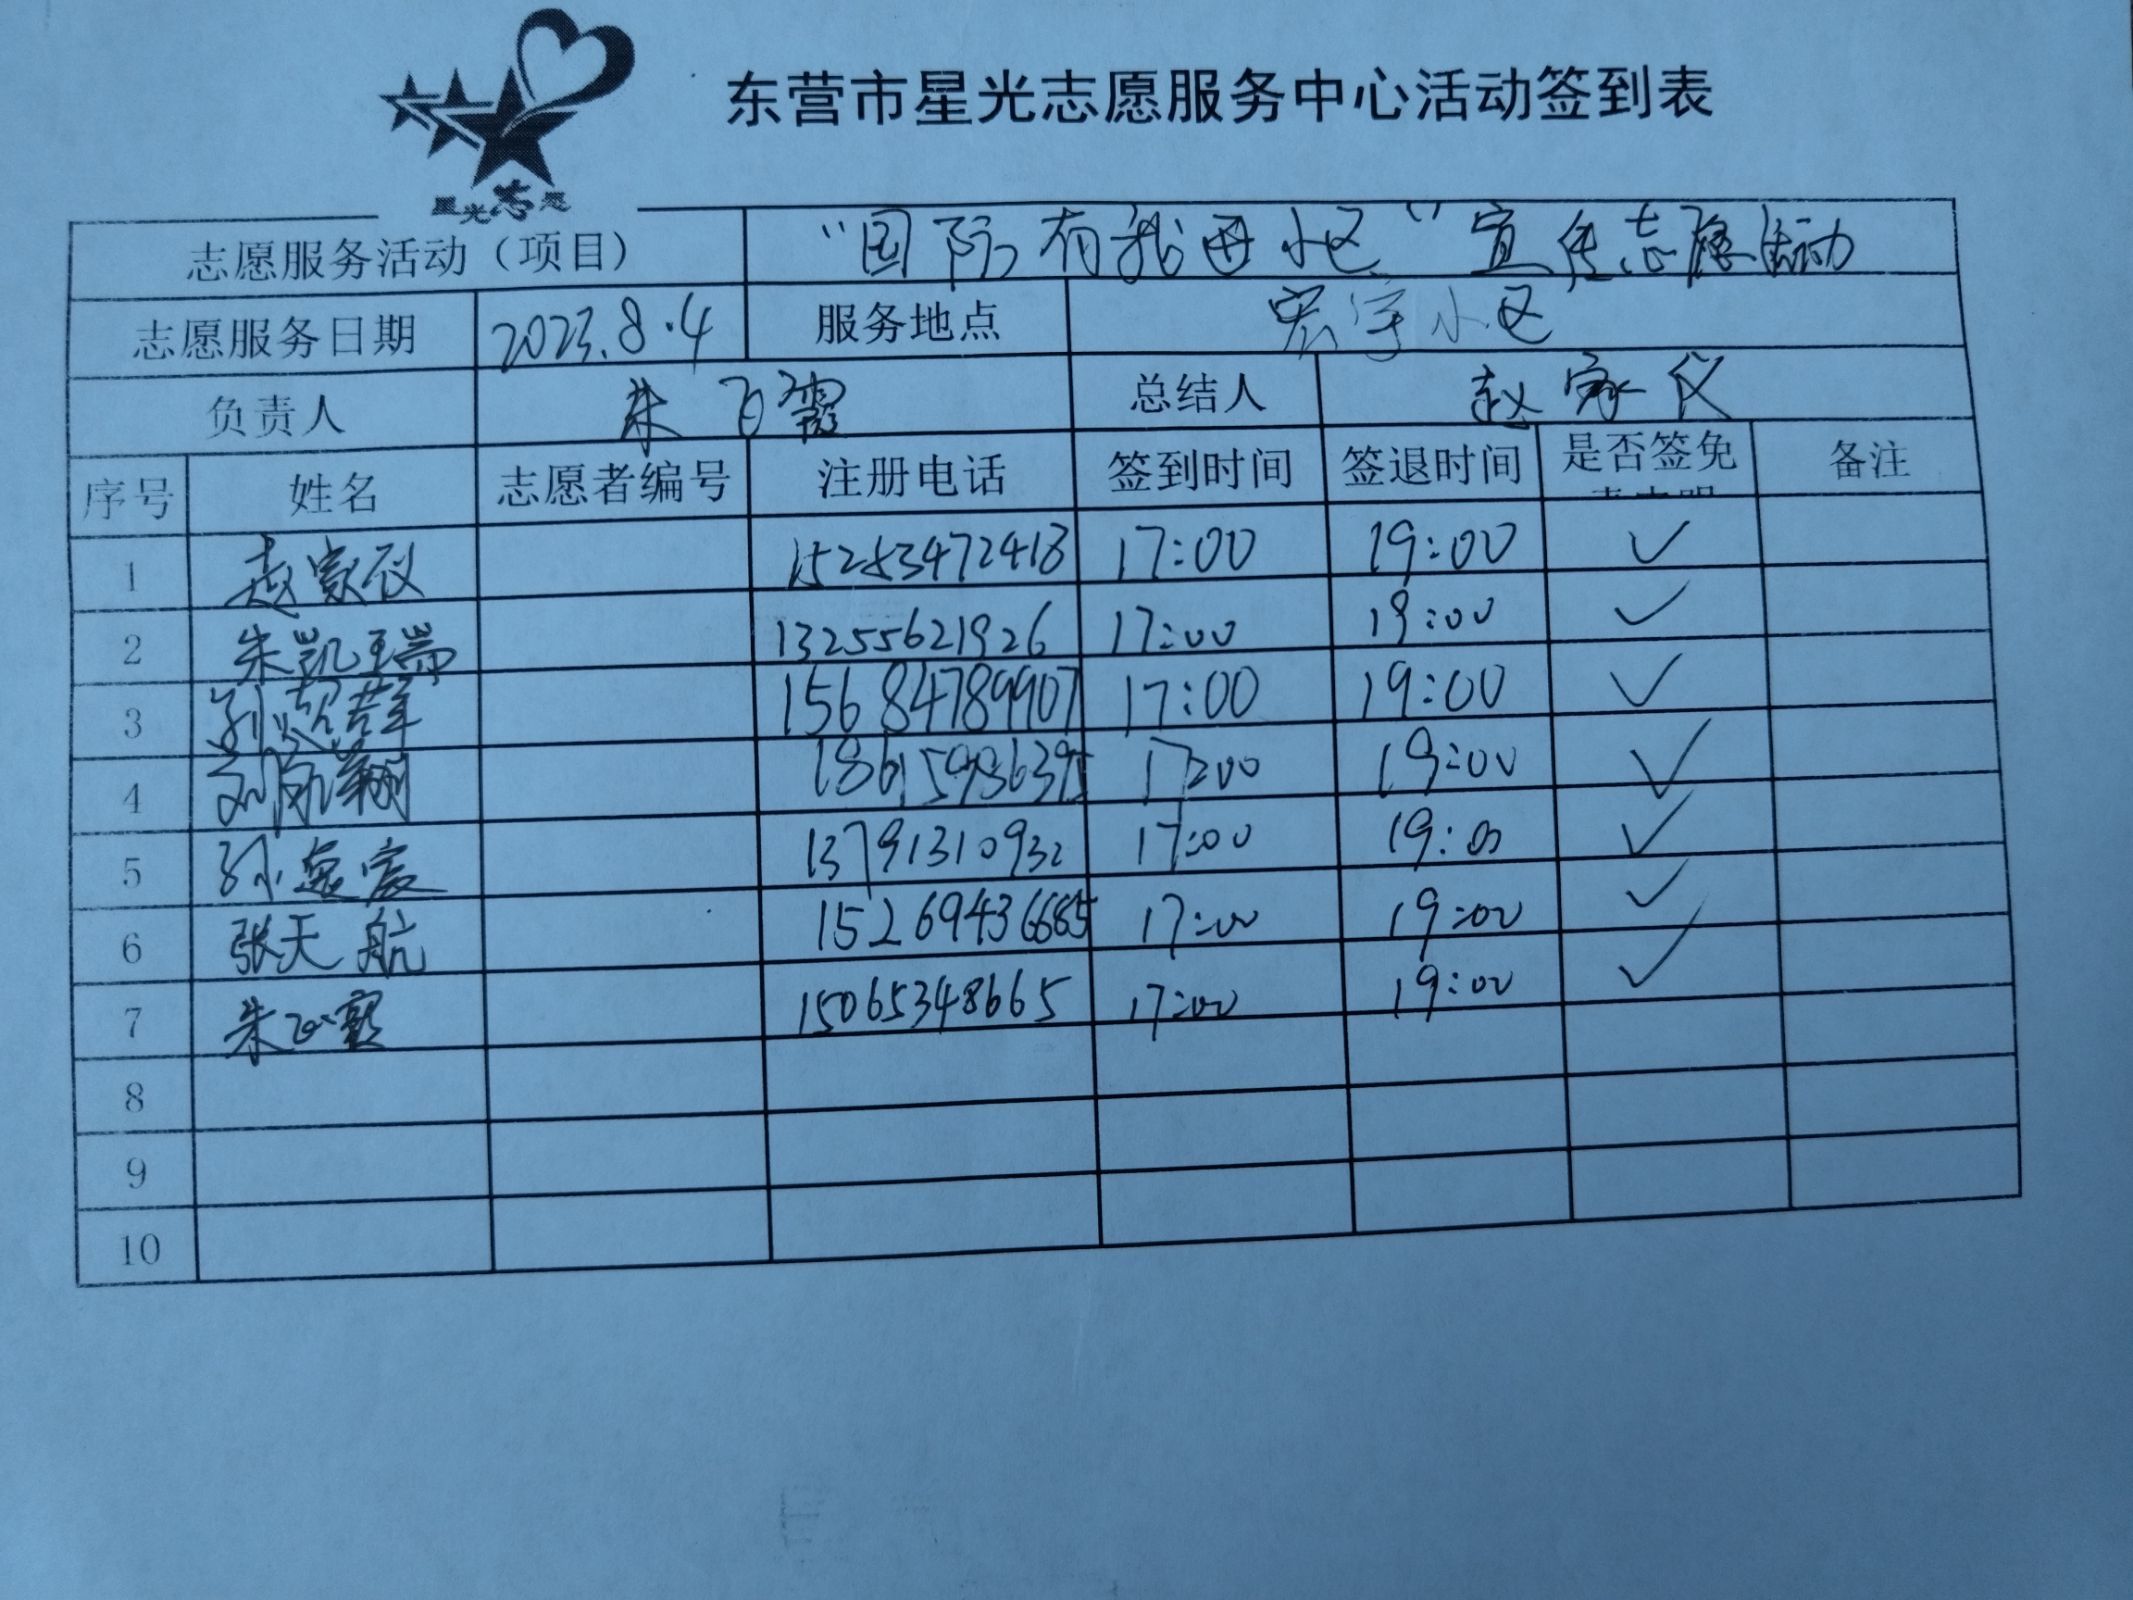 星光志愿
东营市星光志愿服务中心活动签到表
志愿服务活动（项目） “国际有我进小区”宣传志愿活动
志愿服务日期 2023.8.4 服务地点 宏宇小区
负责人 朱飞霞 总结人 赵家仪
序号 姓名 志愿者编号 注册电话 签到时间 签退时间 是否签免 备注
1 赵家仪 15253472418 17:00 19:00 ✓
2 朱凯瑞 13255621926 17:00 19:00 ✓
3 孙 15684789907 17:00 19:00 ✓
4 刘 18615986395 17:00 19:00 ✓
5 孙逸宸 13791310932 17:00 19:00 ✓
6 张天航 15269436685 17:00 19:00 ✓
7 朱飞霞 15065348665 17:00 19:00 ✓
8
9
10